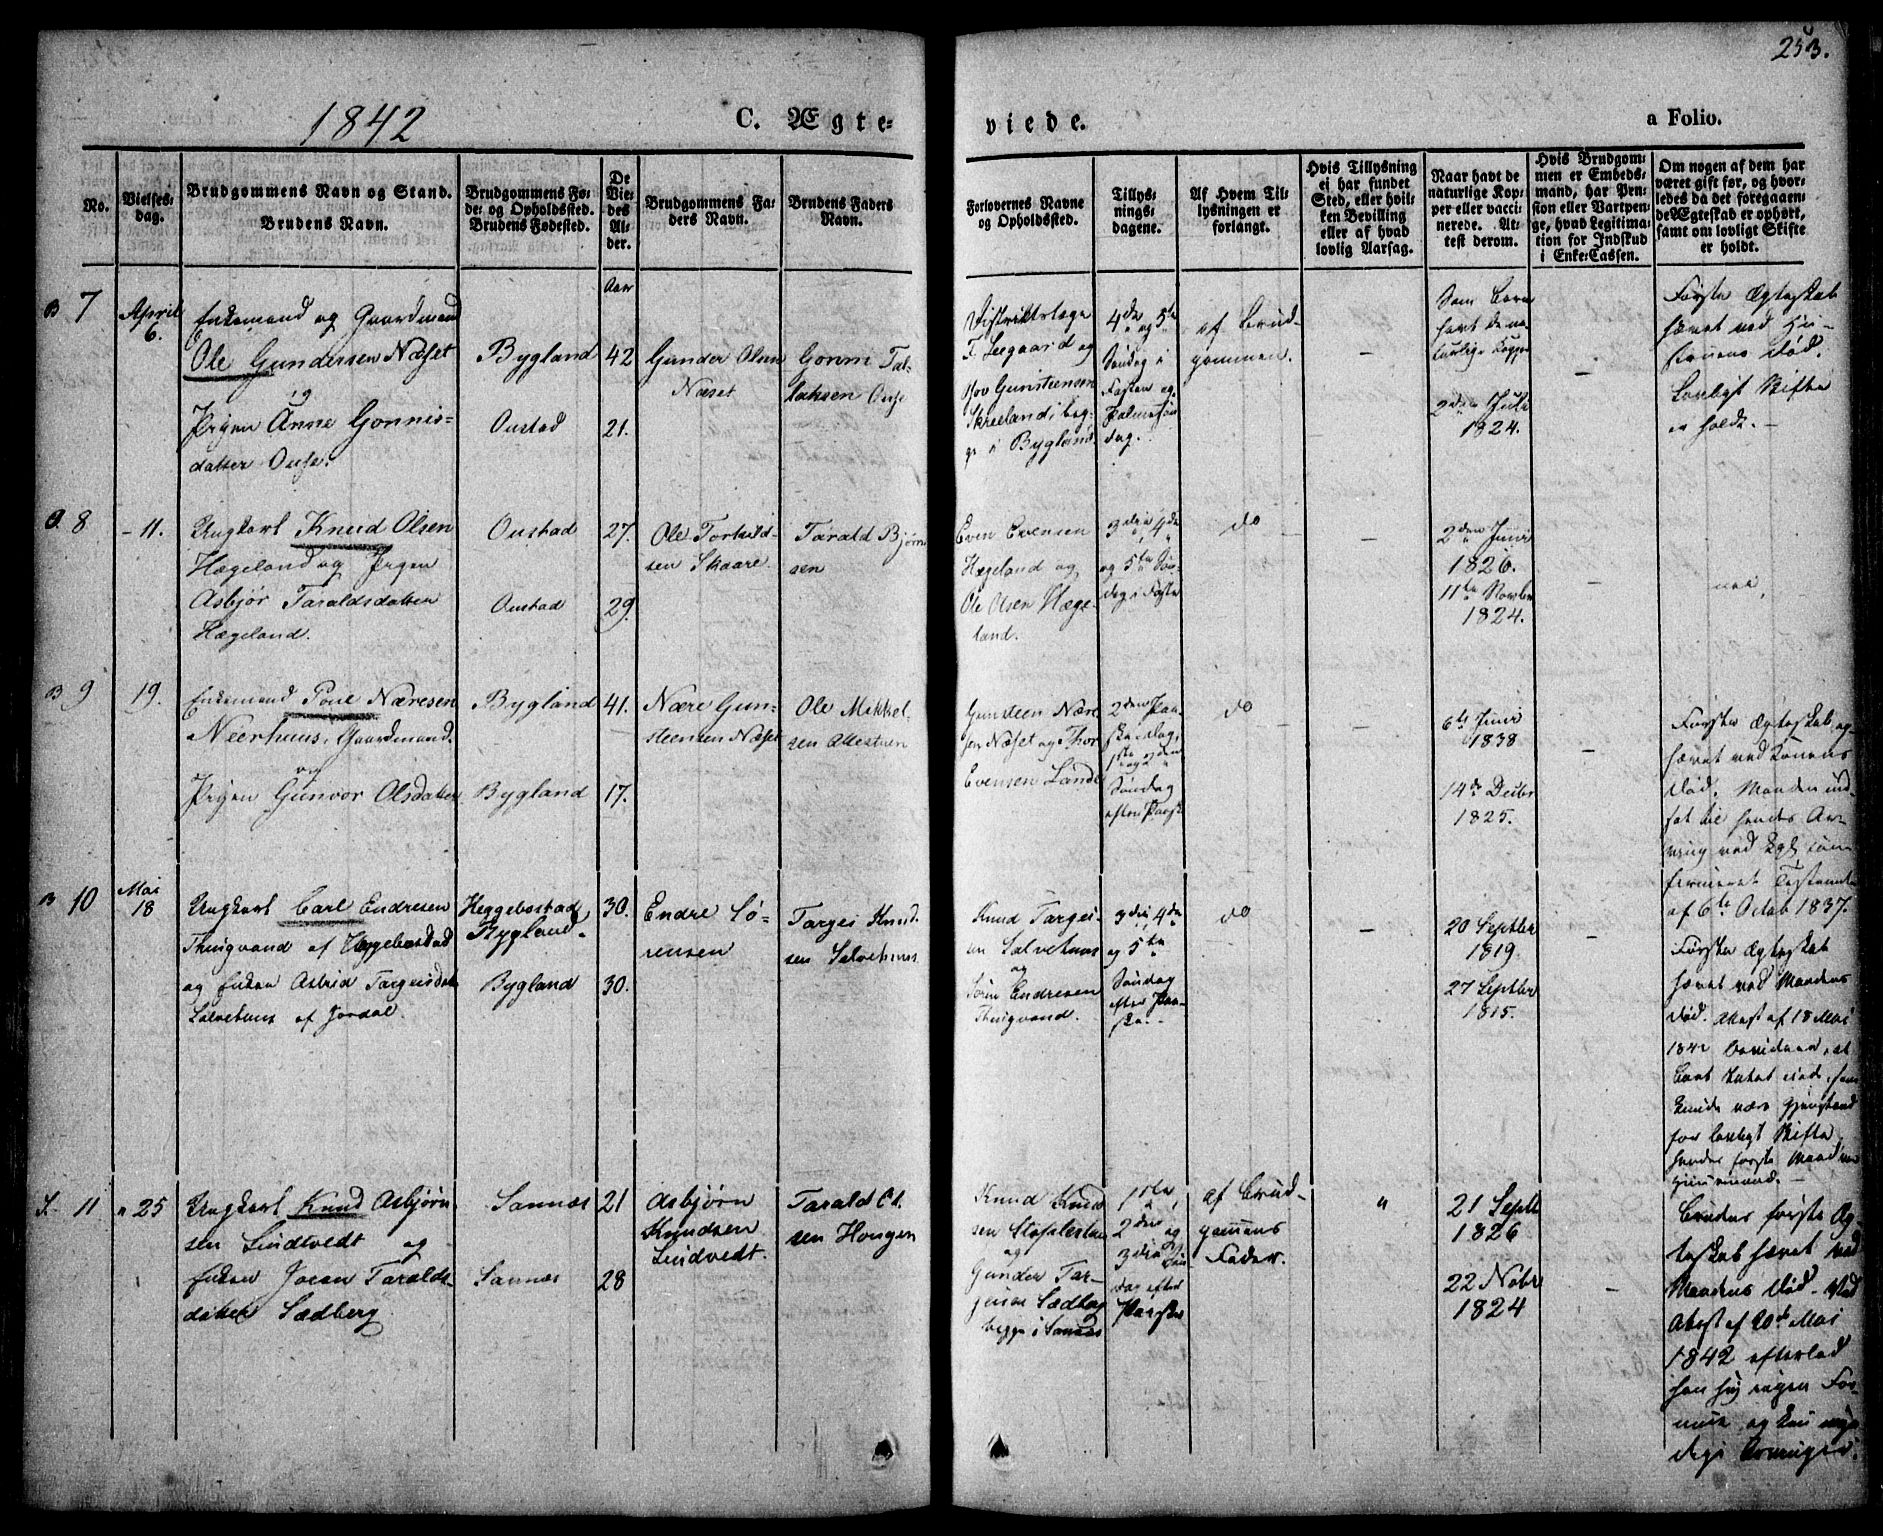 253.
1842
C. Ægte-
viede.
a Folio.
No.
Vielses-
dag.
Brudgommens Navn og Stand.
Brudens Navn.
Brudgommens Fø-
de- og Opholdssted.
Brudens Fødested.
De
Vie-
des
Al-
der.
Brudgommens Fa-
ders Navn.
Brudens Faders
Navn.
Forlovernes Navne
og Opholdssted.
Tillys-
nings-
dagene.
Af Hvem Til-
lysningen er
forlangt.
Hvis Tillysning
ei har fundet
Sted, eller hvil-
ken Bevilling
eller af hvad
lovlig Aarsag.
Naar havt de
naturlige Kop-
per eller vacci-
nerede. At-
test derom.
Hvis Brudgom-
men er Embeds-
mand, har Pen-
sion eller Vartpen-
ge, hvad Legitima-
tion for Indskud
i Enke-Cassen.
Om nogen af dem har
været gift før, og hvor-
ledes da det foregaaen-
de Ægteskab er ophørt,
samt om lovligt Skifte
er holdt.
B 7
April
6.
Enkemand og Gaardmand
Ole Gundersen Næset
og
Pigen Anne Gonnis-
datter Ouse.
Bygland
Oustad
Aar
42
21.
Gunder Olsen
Næset
Gonni Tal-
laksen Ouse
Distriktslæge
F. Seegaard og
Gunsteensen
Skreeland, beg-
ge i Bygland.
4de og 5te
Søndag i
Fasten og
Palmesøn-
dag.
af Brud-
gommen.
Som Barn
havt de na-
turlige Kopper
2den Juli
1824.
Første Ægteskab
hævet ved Hu-
struens Død.
Lovligt Skifte
er holdt.
O. 8
- 11.
Ungkarl Knud Olsen
Hægeland og Pigen
Asbjør Taraldsdatter
Hægeland.
Oustad
Oustad
27.
29.
Ole Torkild-
sen Skaare
Tarald Bjørn
sen
Even Evensen
Hægeland og
Ole Olsen Hæge-
land.
3die, 4de
og 5te Søn-
dag i Faste
do
2den Juni
1826.
11te Novbr
1824.
nei.
B 9
19.
Enkemand Poul Næresen
Neerhuus, Gaardmand.
og
Pigen Gunvor Olsdatter
Bygland
Bygland
41.
17.
Nære Gun-
steensen Næset
Ole Mikkel-
sen
Gunsteen Nære
sen Næset og Thor
Evensen Lande
2den Paa-
skedag,
1ste og 2den
Søndag
efter Paaske
do
6te Juni
1838
14de Decbr
1825.
Første Ægteskab op-
hævet ved Konens
Død. Manden ind-
sat til hendes Ar-
ving ved Kgl. con-
firmeret Testamente
af 6te Octob 1837.
B 10
Mai
18
Ungkarl Carl Endresen
Thingvand af Heggebostad
og Enken Astrid Targeisdatt
Salvehuus af Jordal.
Heggebostad
Bygland.
Bygland
30.
30.
Endre Sø-
rensen
Targei Knud-
sen Salvehuus
Knud Targei-
sen Salvehuus
og
Søren Endresen
Thingvand.
3die, 4de
og 5te
Søndag
efter Paa-
ske.
do
20 Septbr
1819.
27 Septbr
1815.
Første Ægteskab
hævet ved Mandens
Død. Attest af 18 Mai
1842 at
Boet Intet
kunde være Gjenstand
for lovligt Skifte
hendes første Mand var
11
" 25
Ungkarl Knud Asbjørn
sen Lindtvedt og
Enken Joran Taralds-
datter Sædberg
Sannæs
Sannæs
21
28
Asbjørn
Knudsen
Lindvedt.
Tarald Ol-
sen Hougen
Knud Knud
sen
og
Gunder Tar-
jesen Sædberg
begge i Sannæs
1ste,
2den og
3die Søn
dag efter
Paaske
af Brud-
gommens
Fader.
"
21 Septb
1826
22 Nobr
1824
Brudens første Æg-
teskab hævet ved
Mandens Død. Ved
Attest af 20de Mai
1842 efterlod
han sig ingen For-
mue, og kun myn-
dige Arvinger.